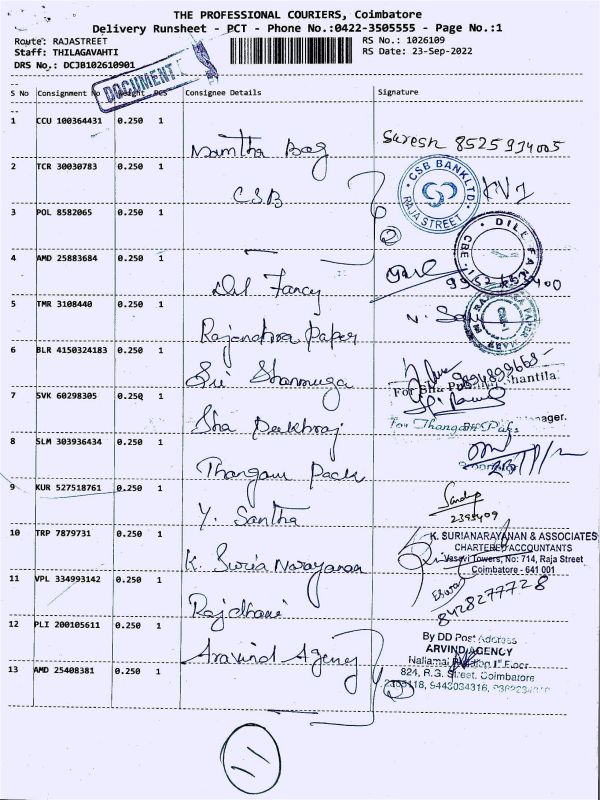 THE PROFESSIONAL COURIERS, Coimbatore
Delivery Runsheet - PCT - Phone No.:0422-3505555 - Page No.:1
Route: RAJASTREET
RS No.: 1026109
Staff: THILAGAVAHTI
RS Date: 23-Sep-2022
DRS No.: DCJB102610901
DOCUMENT
S No Consignment No Weight Pcs Consignee Details Signature
1 CCU 100364431 0.250 1 Namitha Bag Suresh 8525934005
2 TCR 30030783 0.250 1 CSB
CSB BANK LTD.
RAJA STREET
3 POL 8582065 0.250 1
4 AMD 25883684 0.250 1 Dil Fancy
5 TMR 3108440 0.250 1 Rajendhra Paper
6 BLR 4150324183 0.250 1 Sri Shanmuga
7 SVK 60298305 0.250 1 Sha
For Thangam Paks
8 SLM 303936434 0.250 1 Thangam Pack
9 KUR 527518761 0.250 1 Y. Santha
Sandip
2395409
10 TRP 7879731 0.250 1 K. Suria Narayanan
K. SURIANARAYANAN & ASSOCIATES
CHARTERED ACCOUNTANTS
Vasavi Towers, No: 714, Raja Street
Coimbatore - 641 001
11 VPL 334993142 0.250 1 Rajdhani
8428277728
12 PLI 200105611 0.250 1 Aravind Agency
By DD Post Address
ARVIND AGENCY
13 AMD 25408381 0.250 1
824, R.G. Street, Coimbatore
11